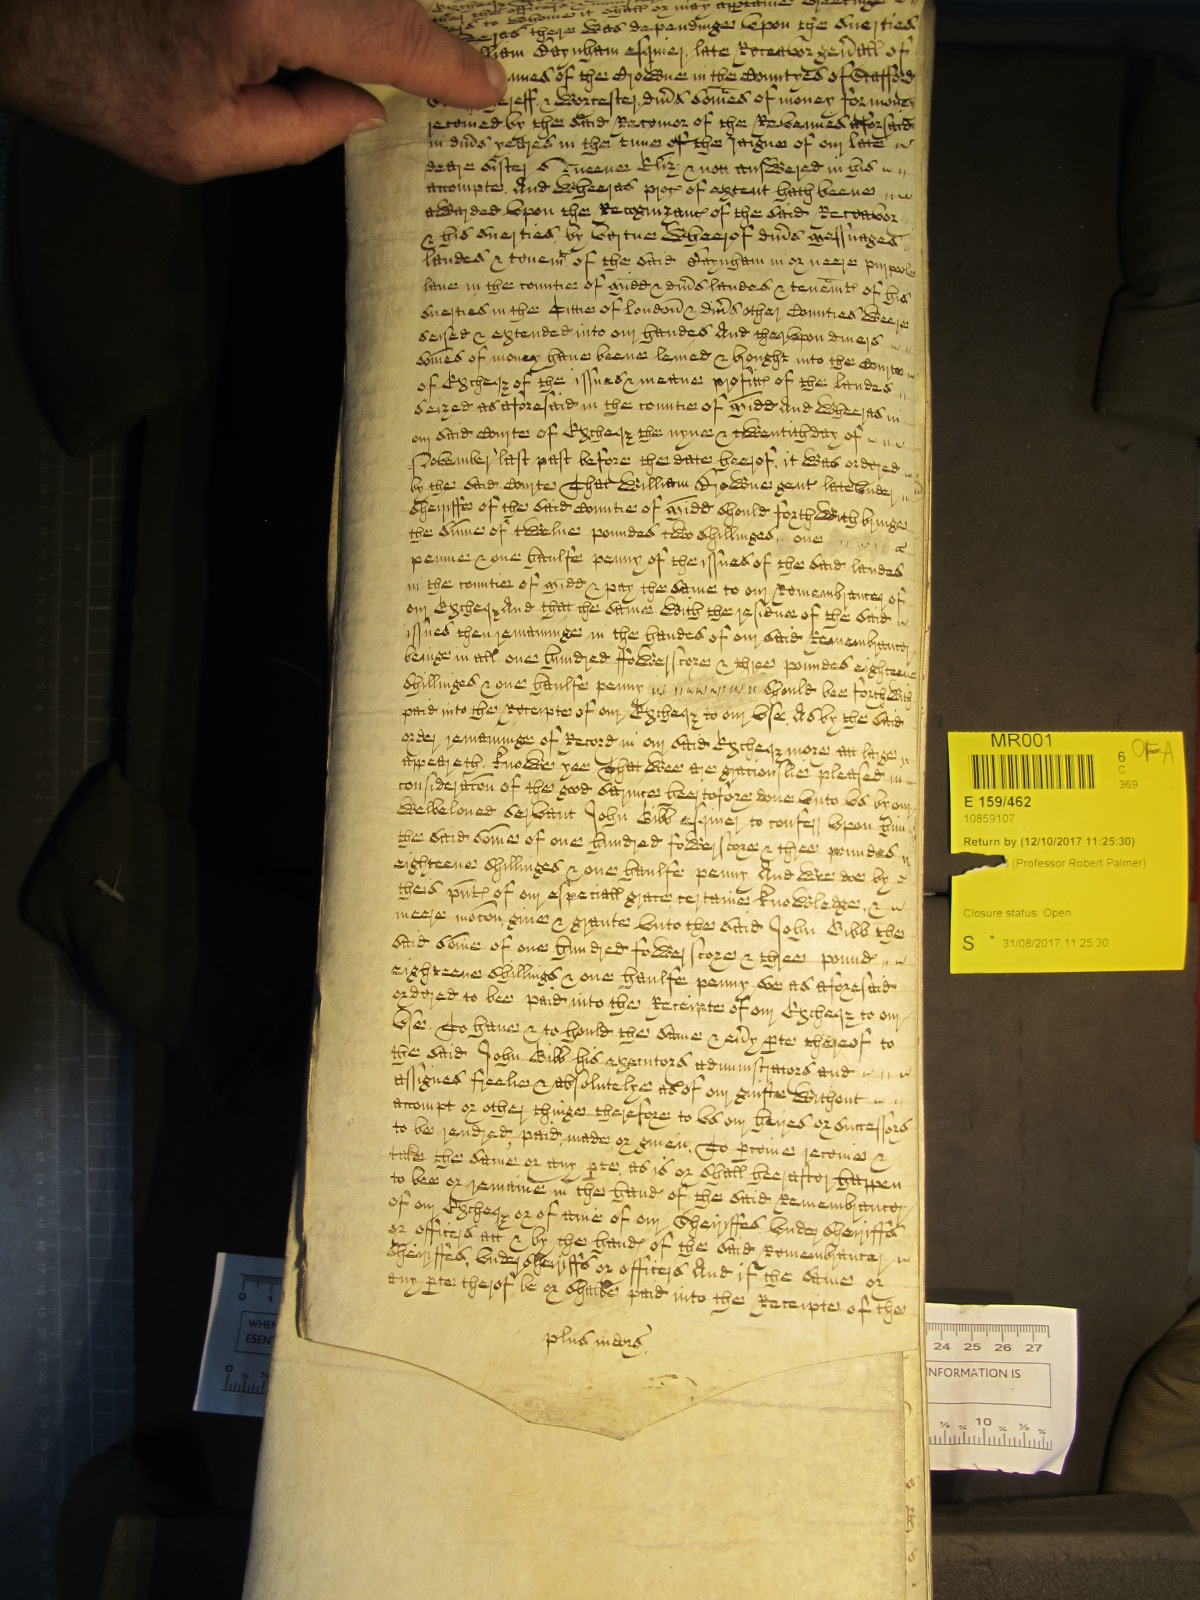 to whome it shall or may apptaine Greetinge
there was dependinge vpon the Suerties
Daynham esquier late Receavor genall of
of the Crowne in the Countyes of Stafford
& Worcester dius somes of money for money
receiued by the said Receiuor of the Revennues aforsaid
in dius yeares in the tyme of the raigne of our late
deare Sister Queene Eliz: & not answered in his
accompte. And Wheras proc of extent hath beene
awarded vpon the Recognizanc of the said Receavor
& his suerties by vertue Wheerof dius Messuages
landes & tenemt of the said Daynham in or neere
lane in the countie of Midd & dius landes & tenemt of his
suerties in the Cittie of London & dius other Counties Weere
seised & extended into our handes And therevpon diuers
somes of money haue beene leuied & brought into the Courte
of Excheqr of the issues & meane profitt of the landes
seized as aforesaid in the countie of Midd And Wheras in
our said Courte of Excheqr the nyne & twentith day of
November last past before the date heerof, it was ordered
by the said Courte That William Crowne gent late vnder
Sheriffe of the said Countie of Midd should forthwith bringe
the summe of twelue poundes two shillinges one
pennie & one haulfe penny of the issues of the said landes
in the countie of Midd & pay the same to our Remembrancer of
our Excheqr And that the same with the residue of the said
issues then remaininge in the handes of our said Remembrancer
beinge in all one hundred fowerscore & three poundes eighteene
shillinges & one haulfe penny should bee forthwith
paid into the Receipte of our Excheqr to our vse. As by the said
order remaininge of Record in our said Excheqr more att large
appeareth. Knowe yee That Wee are gratiouslie pleased in
consideracon of the good service heertofore done vnto vs by our
Welbeloued Servant John Gibb esquier to conferr vpon him
the said some of one hundred fowerscore & three poundes
eighteene shillinges & one haulfe penny And Wee doe by
theis pnte of our especiall grace certaine knowledge, &
meere mocon giue & graunte vnto the said John Gibb the
said some of one hundred fowerscore & three pound
eighteene shillings & one haulfe penny soe as aforesaid
ordered to bee paid into the Receipte of our Excheqr to our
vse. To haue & to hould the same & euy pte thereof to
the said John Gibb his executors administrators and
assignes freelie & absolutelye as of our guifte Without
accompt or other thinge therefore to vs our heires or successors
to be rendred, paid, made or giuen. To pceiue receiue &
take the same or any pte, as is or shall heerafter happen
to bee or remaine in the hand of the said Remembrancer
of our Excheqr or of anie of our Sheriffes vnder sheriffs
or officers att & by the hand of the said Remembrancer
Sheriffes, Vndersheriffs or officers And if the same or
any pte therof be or shalbe paid into the Receipte of the
plus indors
MR001
6
C
369
OFA
E 159/462
10859107
Return by (12/10/2017 11:25:30)
(Professor Robert Palmer)
Closure status: Open
S 31/08/2017 11:25:30
0 1
WHEN
ESEN
0
24 25 26 27
INFORMATION IS
10